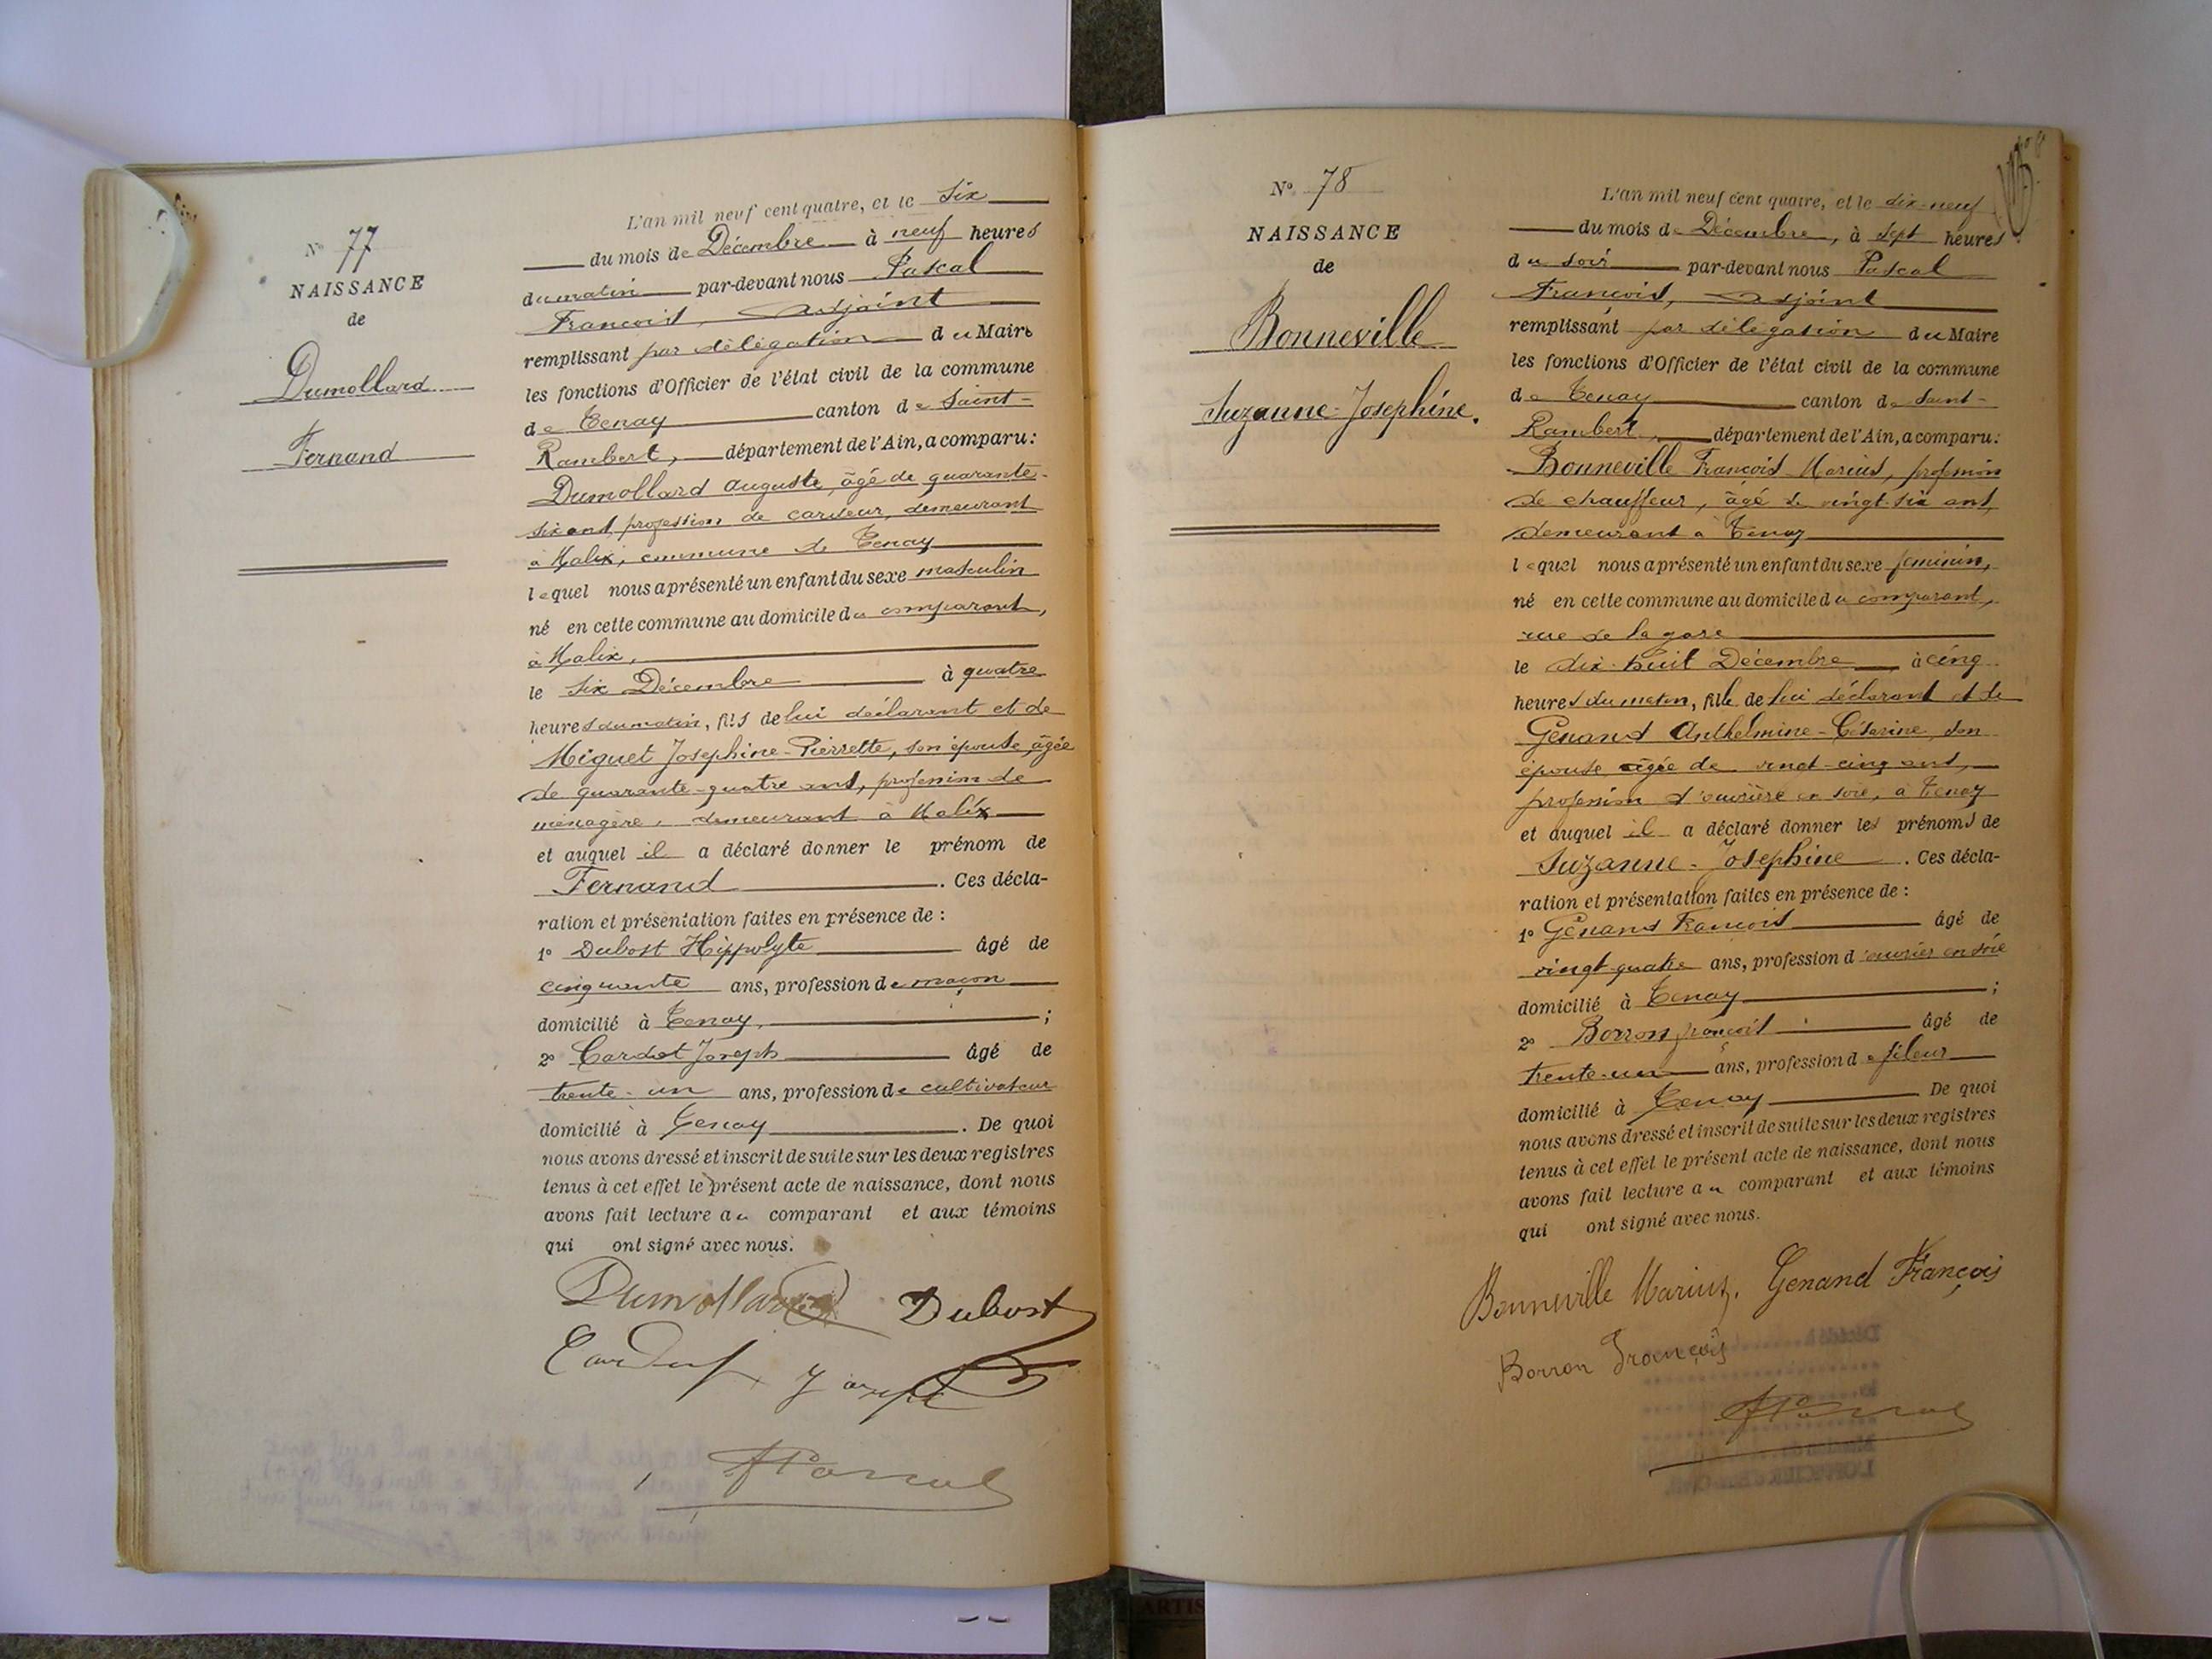 N° 77
NAISSANCE
de
Dumollard
Fernand
L'an mil neuf cent quatre, et le Six
du mois de Décembre à neuf heures
du matin par-devant nous Pascal
François, adjoint
remplissant par délégation du Maire
les fonctions d'Officier de l'état civil de la commune
de Tenay canton de Saint-
Rambert, département de l'Ain, a comparu:
Dumollard Auguste, âgé de quarante-
six ans, profession de cardeur, demeurant
à Malix, commune de Tenay
lequel nous a présenté un enfant du sexe masculin
né en cette commune au domicile du comparant,
à Malix,
le six Décembre à quatre
heures du matin, fils de lui déclarant et de
Miguet Josephine-Pierrette, son épouse, âgée
de quarante-quatre ans, profession de
ménagère, demeurant à Malix
et auquel il a déclaré donner le prénom de
Fernand. Ces décla-
ration et présentation faites en présence de :
1° Dubost Hippolyte âgé de
cinquante ans, profession de maçon
domicilié à Tenay, ;
2° Cardot Joseph âgé de
trente-un ans, profession de cultivateur
domicilié à Tenay. De quoi
nous avons dressé et inscrit de suite sur les deux registres
tenus à cet effet le présent acte de naissance, dont nous
avons fait lecture au comparant et aux témoins
qui ont signé avec nous.
Dumollard Dubost
Cardot Joseph
FPascal
N° 78
NAISSANCE
de
Bonneville
Suzanne-Josephine.
L'an mil neuf cent quatre, et le dix-neuf
du mois de Décembre, à sept heures
du soir par-devant nous Pascal
François, adjoint
remplissant par délégation du Maire
les fonctions d'Officier de l'état civil de la commune
de Tenay canton de Saint-
Rambert, département de l'Ain, a comparu:
Bonneville François Marius, profession
de chauffeur, âgé de vingt-six ans,
demeurant à Tenay
lequel nous a présenté un enfant du sexe feminin,
né en cette commune au domicile du comparant,
rue de la gare
le dix-huit Décembre à cinq
heures du matin, fille de lui déclarant et de
Genand Anthelmine-Césarine, son
épouse, âgée de vingt-cinq ans,
profession d'ouvrière en soie, à Tenay
et auquel il a déclaré donner les prénoms de
Suzanne-Josephine. Ces décla-
ration et présentation faites en présence de :
1° Genand François âgé de
vingt-quatre ans, profession d'ouvrier en soie
domicilié à Tenay ;
2° Borron françois âgé de
trente-un ans, profession de fileur
domicilié à Tenay De quoi
nous avons dressé et inscrit de suite sur les deux registres
tenus à cet effet le présent acte de naissance, dont nous
avons fait lecture au comparant et aux témoins
qui ont signé avec nous.
Bonneville Marius. Genand François
Borron François
FPascal
ARTIS